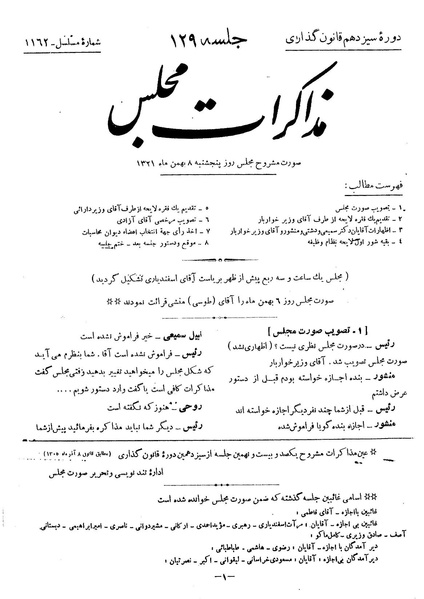 دورهٔ سیزدهم قانون گذاری
جلسه ۱۲۹
شمارهٔ مسلسل - ۱۱۶۲
مذاکرات مجلس
صورت مشروح مجلس روز پنجشنبه ۸ بهمن ماه ۱۳۲۱
فهرست مطالب:
۱ - تصویب صورت مجلس
۲ - تقدیم یک فقره لایحه از طرف آقای وزیر خواربار
۳ - اظهارات آقایان دکتر سمیعی و دشتی و منشور و آقای وزیر خواربار
۴ - بقیه شور اول لایحه نظام وظیفه
۵ - تقدیم یک فقره لایحه از طرف آقای وزیر دارائی
۶ - تصویب مرخصی آقای آزادی
۷ - اخذ رأی جهة انتخاب اعضاء دیوان محاسبات
۸ - موقع و دستور جلسه بعد - ختم جلسه
(مجلس یک ساعت و سه ربع پیش از ظهر بریاست آقای اسفندیاری تشکیل گردید)
صورت مجلس روز ۶ بهمن ماه را آقای (طوسی) منشی قرائت نمودند
[ ۱ - تصویب صورت مجلس ]
رئیس - در صورت مجلس نظری نیست؟ (اظهاری نشد)
صورت مجلس تصویب شد. آقای وزیر خواربار
منشور - بنده اجازه خواسته بودم قبل از دستور
عرض داشتم
رئیس - قبل از شما چند نفر دیگر اجازه خواسته اند
منشور - اجازه بنده گویا فراموش شده
نبیل سمیعی - خیر فراموش نشده است
رئیس - فراموش نشده است آقا. شما بنظرم می آید
که شکل مجلس را میخواهید تغییر بدهید رفتی مجلس گفت
مذاکرات کافی است یا گفت وارد دستور شویم ....
روحی - هنوز که نگفته است
رئیس - دیگر شما نباید مذاکره بفرمائید پیش از شما
عین مذاکرات مشروح یکصد و بیست و نهمین جلسه از سیزدهمین دورهٔ قانون گذاری (مطابق قانون ۸ آذر ماه ۱۳۰۵)
ادارهٔ تند نویسی و تحریر صورت مجلس
اسامی غائبین جلسه گذشته که ضمن صورت مجلس خوانده شده است
غائبین با اجازه - آقای فاطمی:
غائبین بی اجازه - آقایان: مرآت اسفندیاری - رهبری - مؤید احمدی - ارکانی - مشیر دوانی - ناصری - امیر ابراهیمی - دبستانی
آصف - صادق وزیری - کامل ماکو:
دیر آمدگان با اجازه - آقایان: رضوی - هاشمی - طباطبائی:
دیر آمدگان بی اجازه - آقایان: مسعودی خراسانی - لیقوانی - اکبر - نصرتیان:
- ۱ -